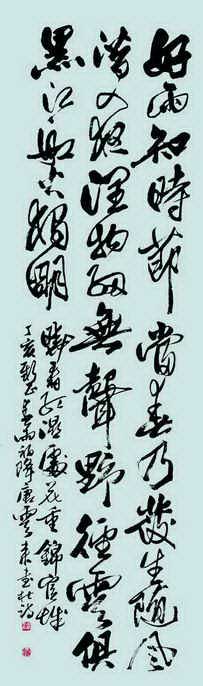 好雨知時節當春乃發生隨風
潛入夜潤物細無聲野徑雲俱
黑江船火獨明
曉看紅濕處花重錦官城
丁亥雨初降唐雲來書杜詩